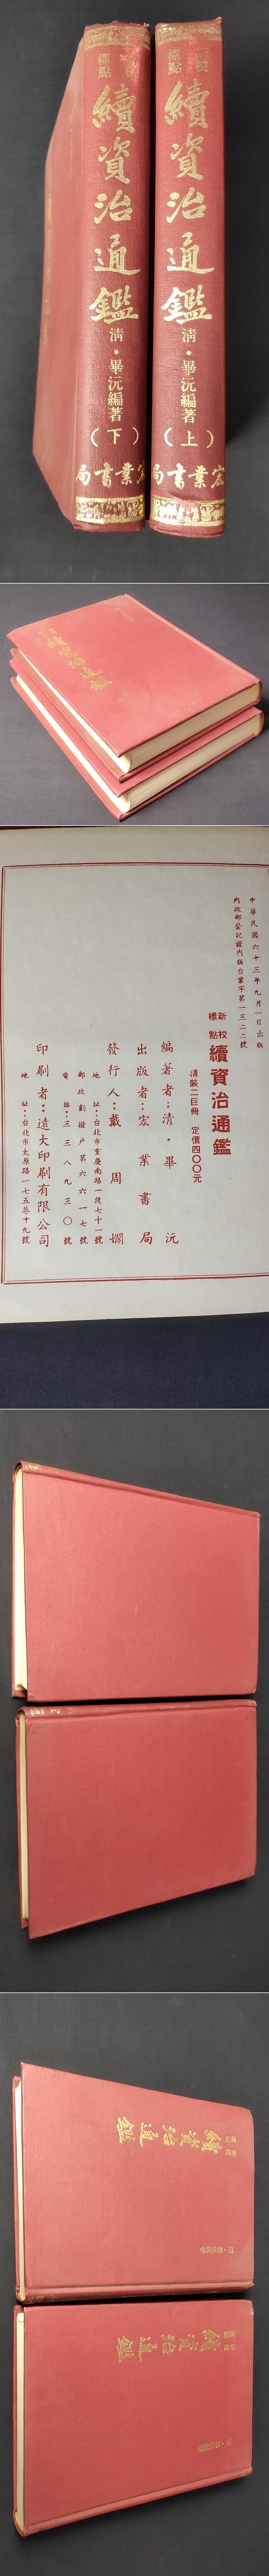 新校
標點
續資治通鑑
清·畢沅編著
(上)
宏業書局
標點
校
續資治通鑑
清·畢沅編著
(下)
宏業書局
續資治通鑑
中華民國六十三年九月一日出版
內政部登記證內版台業字第一三二二號
新校
標點
續資治通鑑
精裝二巨冊 定價四〇〇元
編著者：清·畢沅
出版者：宏業書局
發行人：戴周嫺
地址：台北市重慶南路一段七十一號
郵政劃撥戶第六六一七號
電話：三三八九三〇號
印刷者：遠大印刷有限公司
地址：台北市太原路一七五巷十九號
續資治通鑑
續資治通鑑